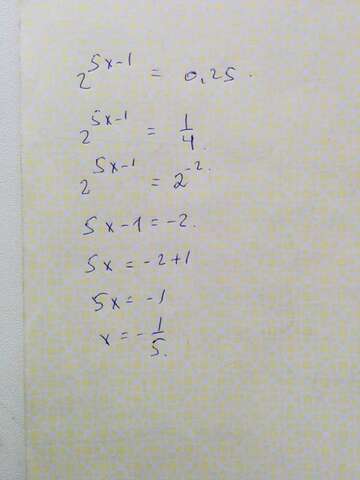 2^{5x-1} = 0,25.
2^{5x-1} = \frac{1}{4}.
2^{5x-1} = 2^{-2}.
5x-1=-2.
5x = -2+1
5x = -1
x = -\frac{1}{5}.